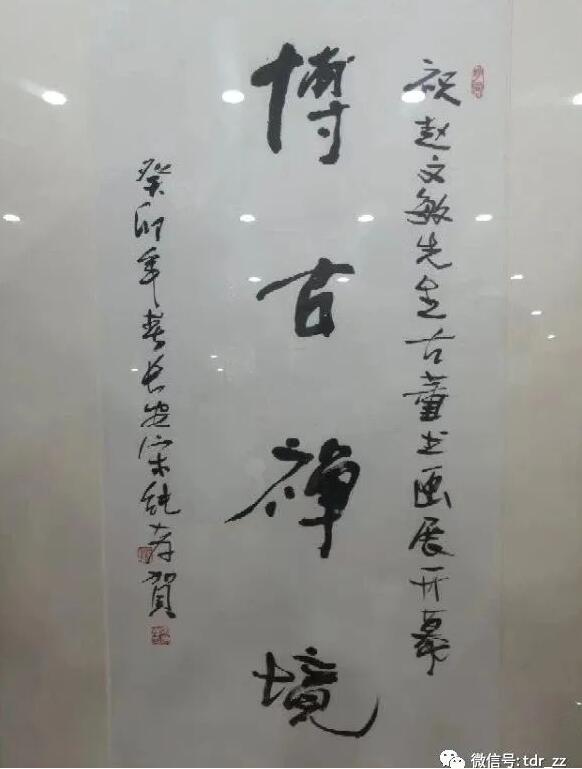 祝赵文敏先生古董书画展开幕
博古禅境
癸卯年春长安宋纯孝贺
微信号:tdr_zz